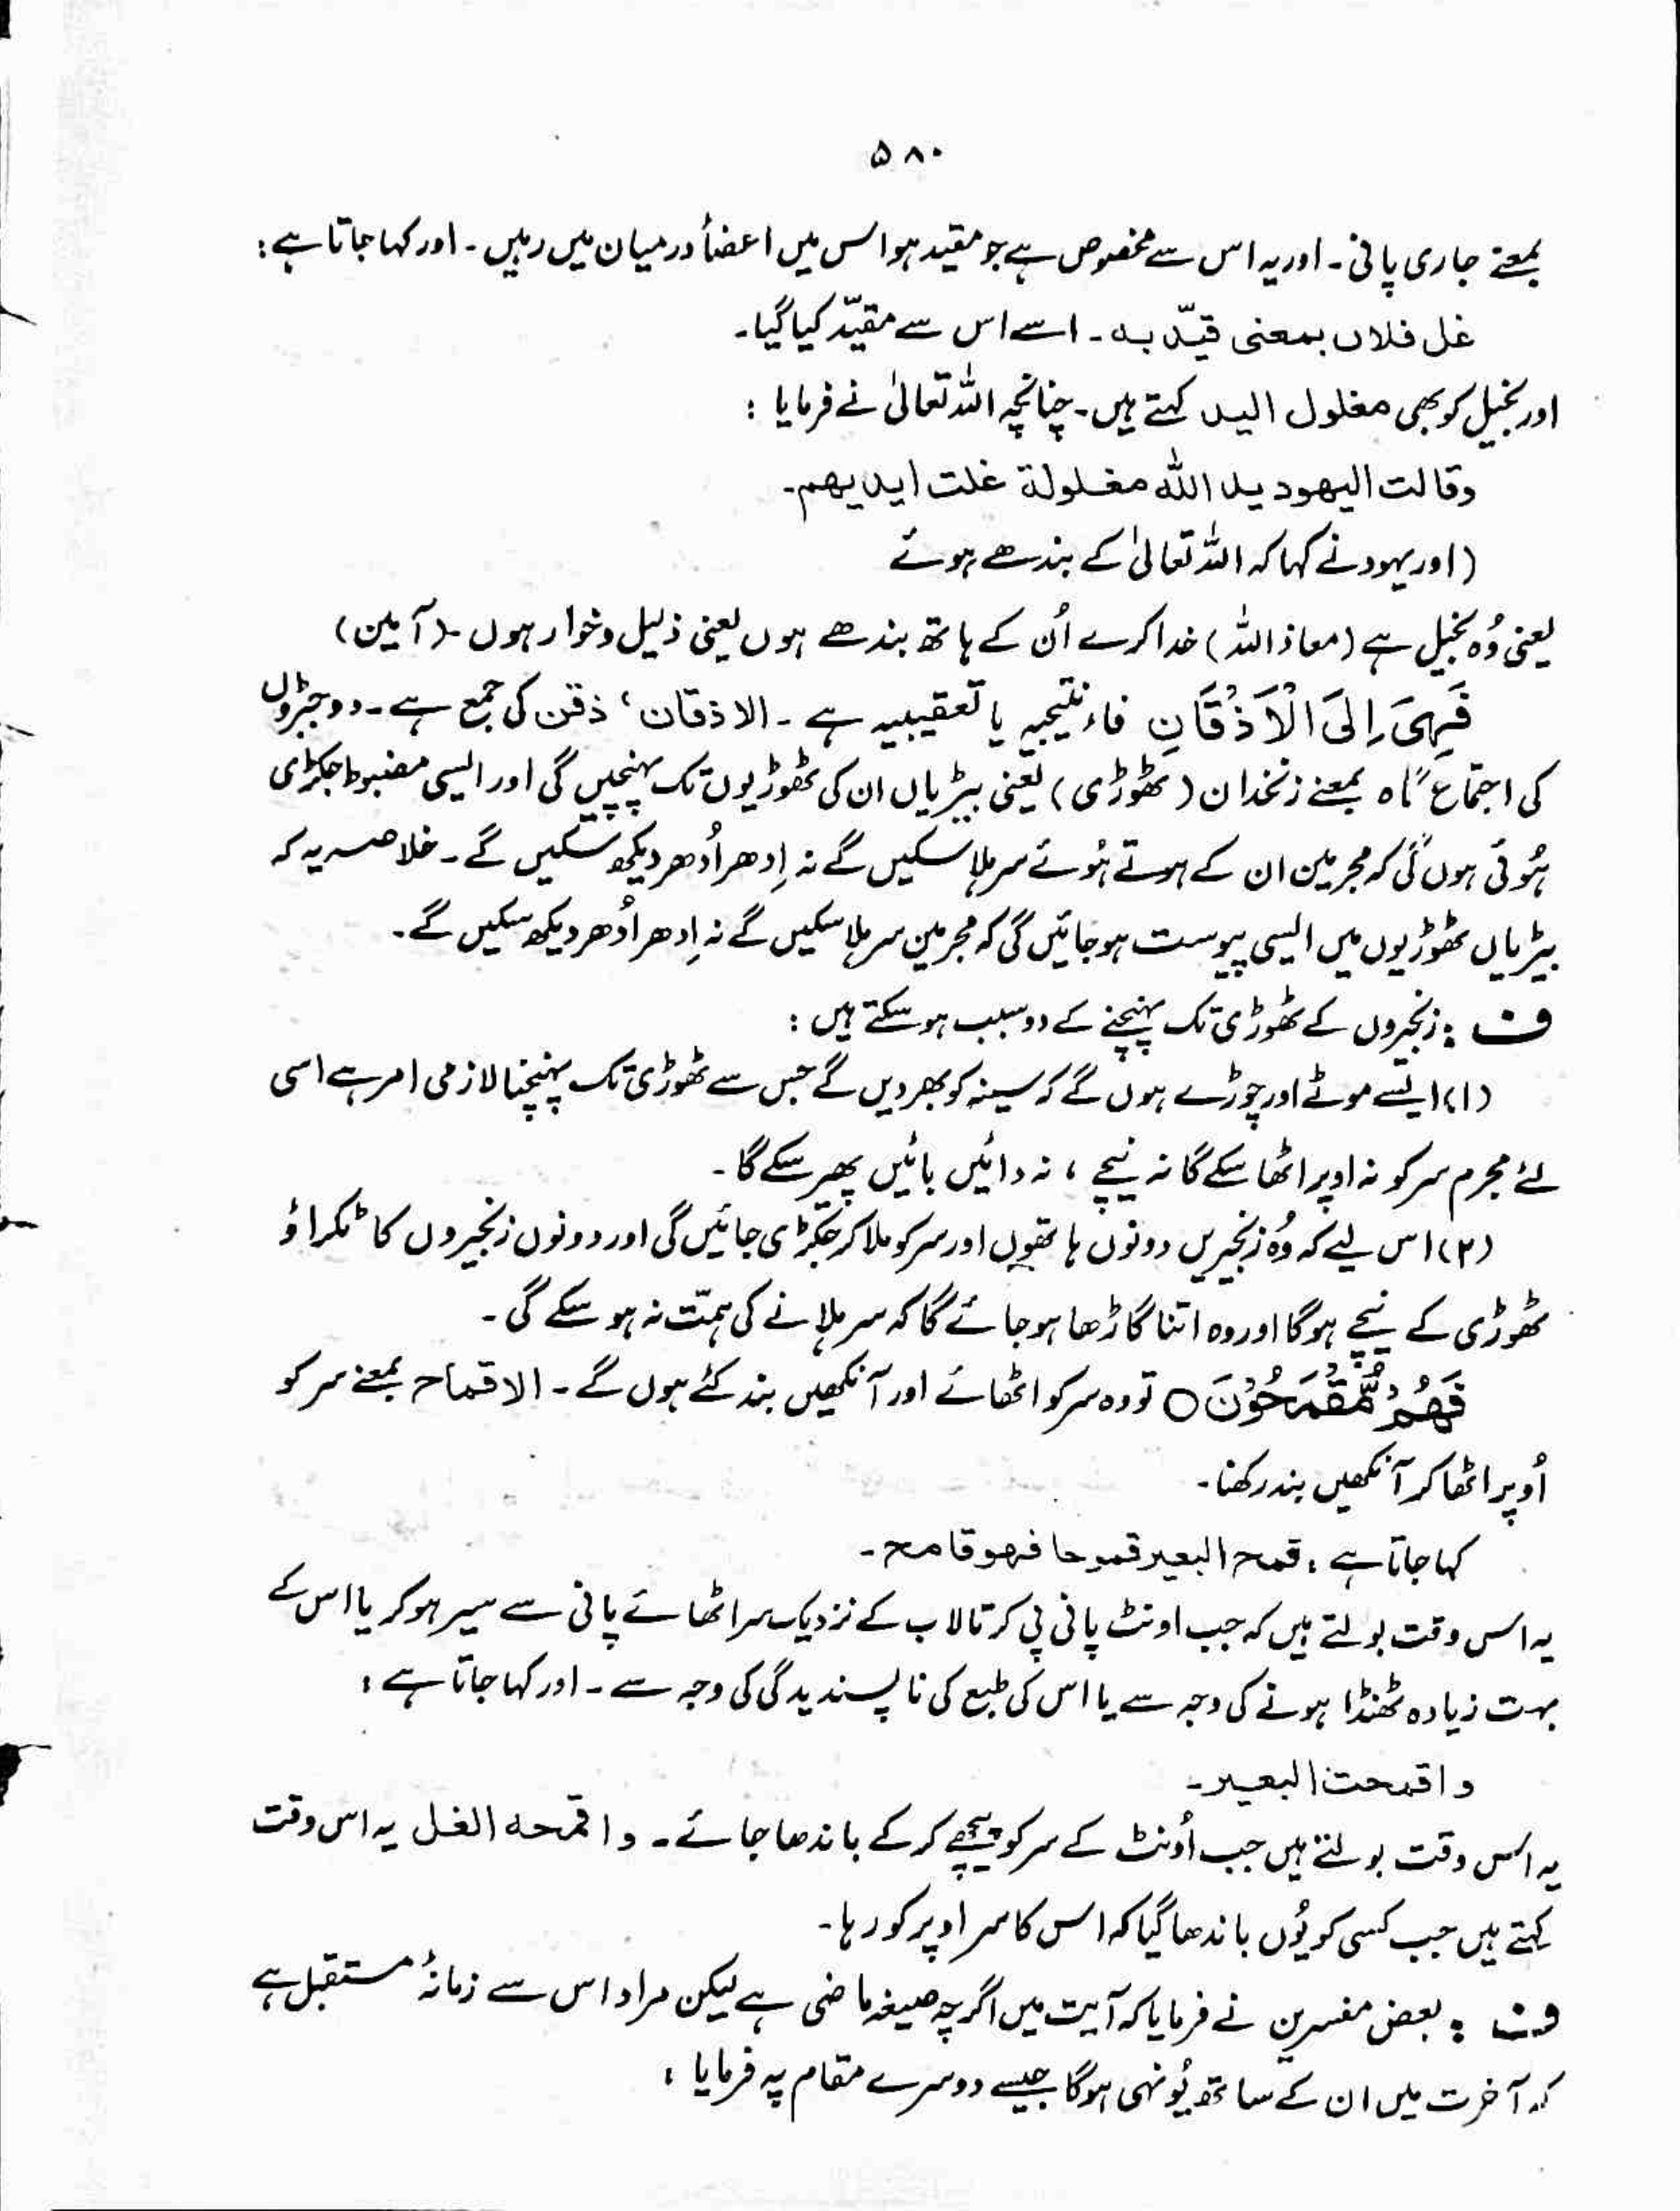 ۵۸۰
بمعنے جاری پانی۔ اور یہ اس سے مخصوص ہے جو مقید ہو اس میں اعضأ درمیان میں رہیں۔ اور کہا جاتا ہے :
غل فلان بمعنی قیّد بہ۔ اسے اس سے مقیّد کیا گیا۔
اور بخیل کو بھی مغلول الید کہتے ہیں۔ چنانچہ اللہ تعالیٰ نے فرمایا :
وقالت الیھود ید اللہ مغلولة غلت ایدیھم۔
(اور یہود نے کہا کہ اللہ تعالیٰ کے بندھے ہوئے
یعنی وُہ بخیل ہے (معاذ اللہ) خدا کرے اُن کے ہاتھ بندھے ہوں یعنی ذلیل و خوار ہوں۔ (آمین)
فَهِیَ اِلَی الْاَذْقَانِ فاء نتیجیہ یا تعقیبیہ ہے۔ الاذقان، ذقن کی جمع ہے۔ دو جبڑوں
کی اجتماع گاہ بمعنے زنخدان (ٹھوڑی) یعنی بیڑیاں ان کی ٹھوڑیوں تک پہنچیں گی اور ایسی مضبوط جکڑی
ہُوئی ہوں گی کہ مجرمین ان کے ہوتے ہُوئے سر ہلا سکیں گے نہ اِدھر اُدھر دیکھ سکیں گے۔ خلاصہ یہ کہ
بیڑیاں ٹھوڑیوں میں ایسی پیوست ہوجائیں گی کہ مجرمین سر ہلا سکیں گے نہ اِدھر اُدھر دیکھ سکیں گے۔
ف : زنجیروں کے ٹھوڑی تک پہنچنے کے دو سبب ہوسکتے ہیں :
(۱) ایسے موٹے اور چوڑے ہوں گے کہ سینہ کو بھر دیں گے جس سے ٹھوڑی تک پہنچنا لازمی امر ہے اسی
لئے مجرم سر کو نہ اوپر اٹھا سکے گا نہ نیچے ، نہ دائیں بائیں پھیر سکے گا۔
(۲) اس لیے کہ وُہ زنجیریں دونوں ہاتھوں اور سر کو ملا کر جکڑی جائیں گی اور دونوں زنجیروں کا ٹکراؤ
ٹھوڑی کے نیچے ہوگا اور وہ اتنا گاڑھا ہوجائے گا کہ سر ہلانے کی ہمّت نہ ہو سکے گی۔
فَهُمْ مُّقْمَحُوْنَ ○ تو وہ سر کو اٹھائے اور آنکھیں بند کئے ہوں گے۔ الاقماح بمعنے سر کو
اُوپر اٹھا کر آنکھیں بند رکھنا۔
کہا جاتا ہے : قمح البعیر قموحا فھو قامح۔
یہ اس وقت بولتے ہیں کہ جب اونٹ پانی پی کر تالاب کے نزدیک سر اٹھائے پانی سے سیر ہو کر یا اس کے
بہت زیادہ ٹھنڈا ہونے کی وجہ سے یا اس کی طبع کی ناپسندیدگی کی وجہ سے۔ اور کہا جاتا ہے :
و اقمحت البعیر۔
یہ اس وقت بولتے ہیں جب اُونٹ کے سر کو پیچھے کرکے باندھا جائے۔ و اقمحه الغل یہ اس وقت
کہتے ہیں جب کسی کو یُوں باندھا گیا کہ اس کا سر اوپر کو رہا۔
ف : بعض مفسرین نے فرمایا کہ آیت میں اگرچہ صیغہ ماضی ہے لیکن مراد اس سے زمانۂ مستقبل ہے
کہ آخرت میں ان کے ساتھ یُونہی ہوگا جیسے دوسرے مقام پہ فرمایا :